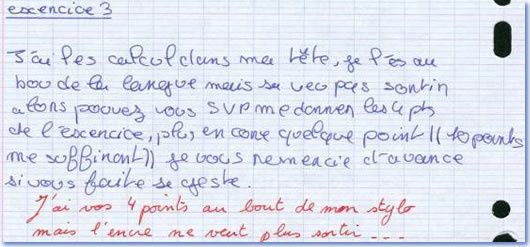 exercice 3
J'ai les calcul dans ma tête, je l'és au
bou de la langue mais sa veu pas sortir
alors pouvez vous SVP me donner les 4 pts
de l'exercice, plus encore quelque point (( 10 points
me suffiront)) je vous remercie d'avance
si vous faite se geste.
J'ai vos 4 points au bout de mon stylo
mais l'encre ne veut plus sortir ...